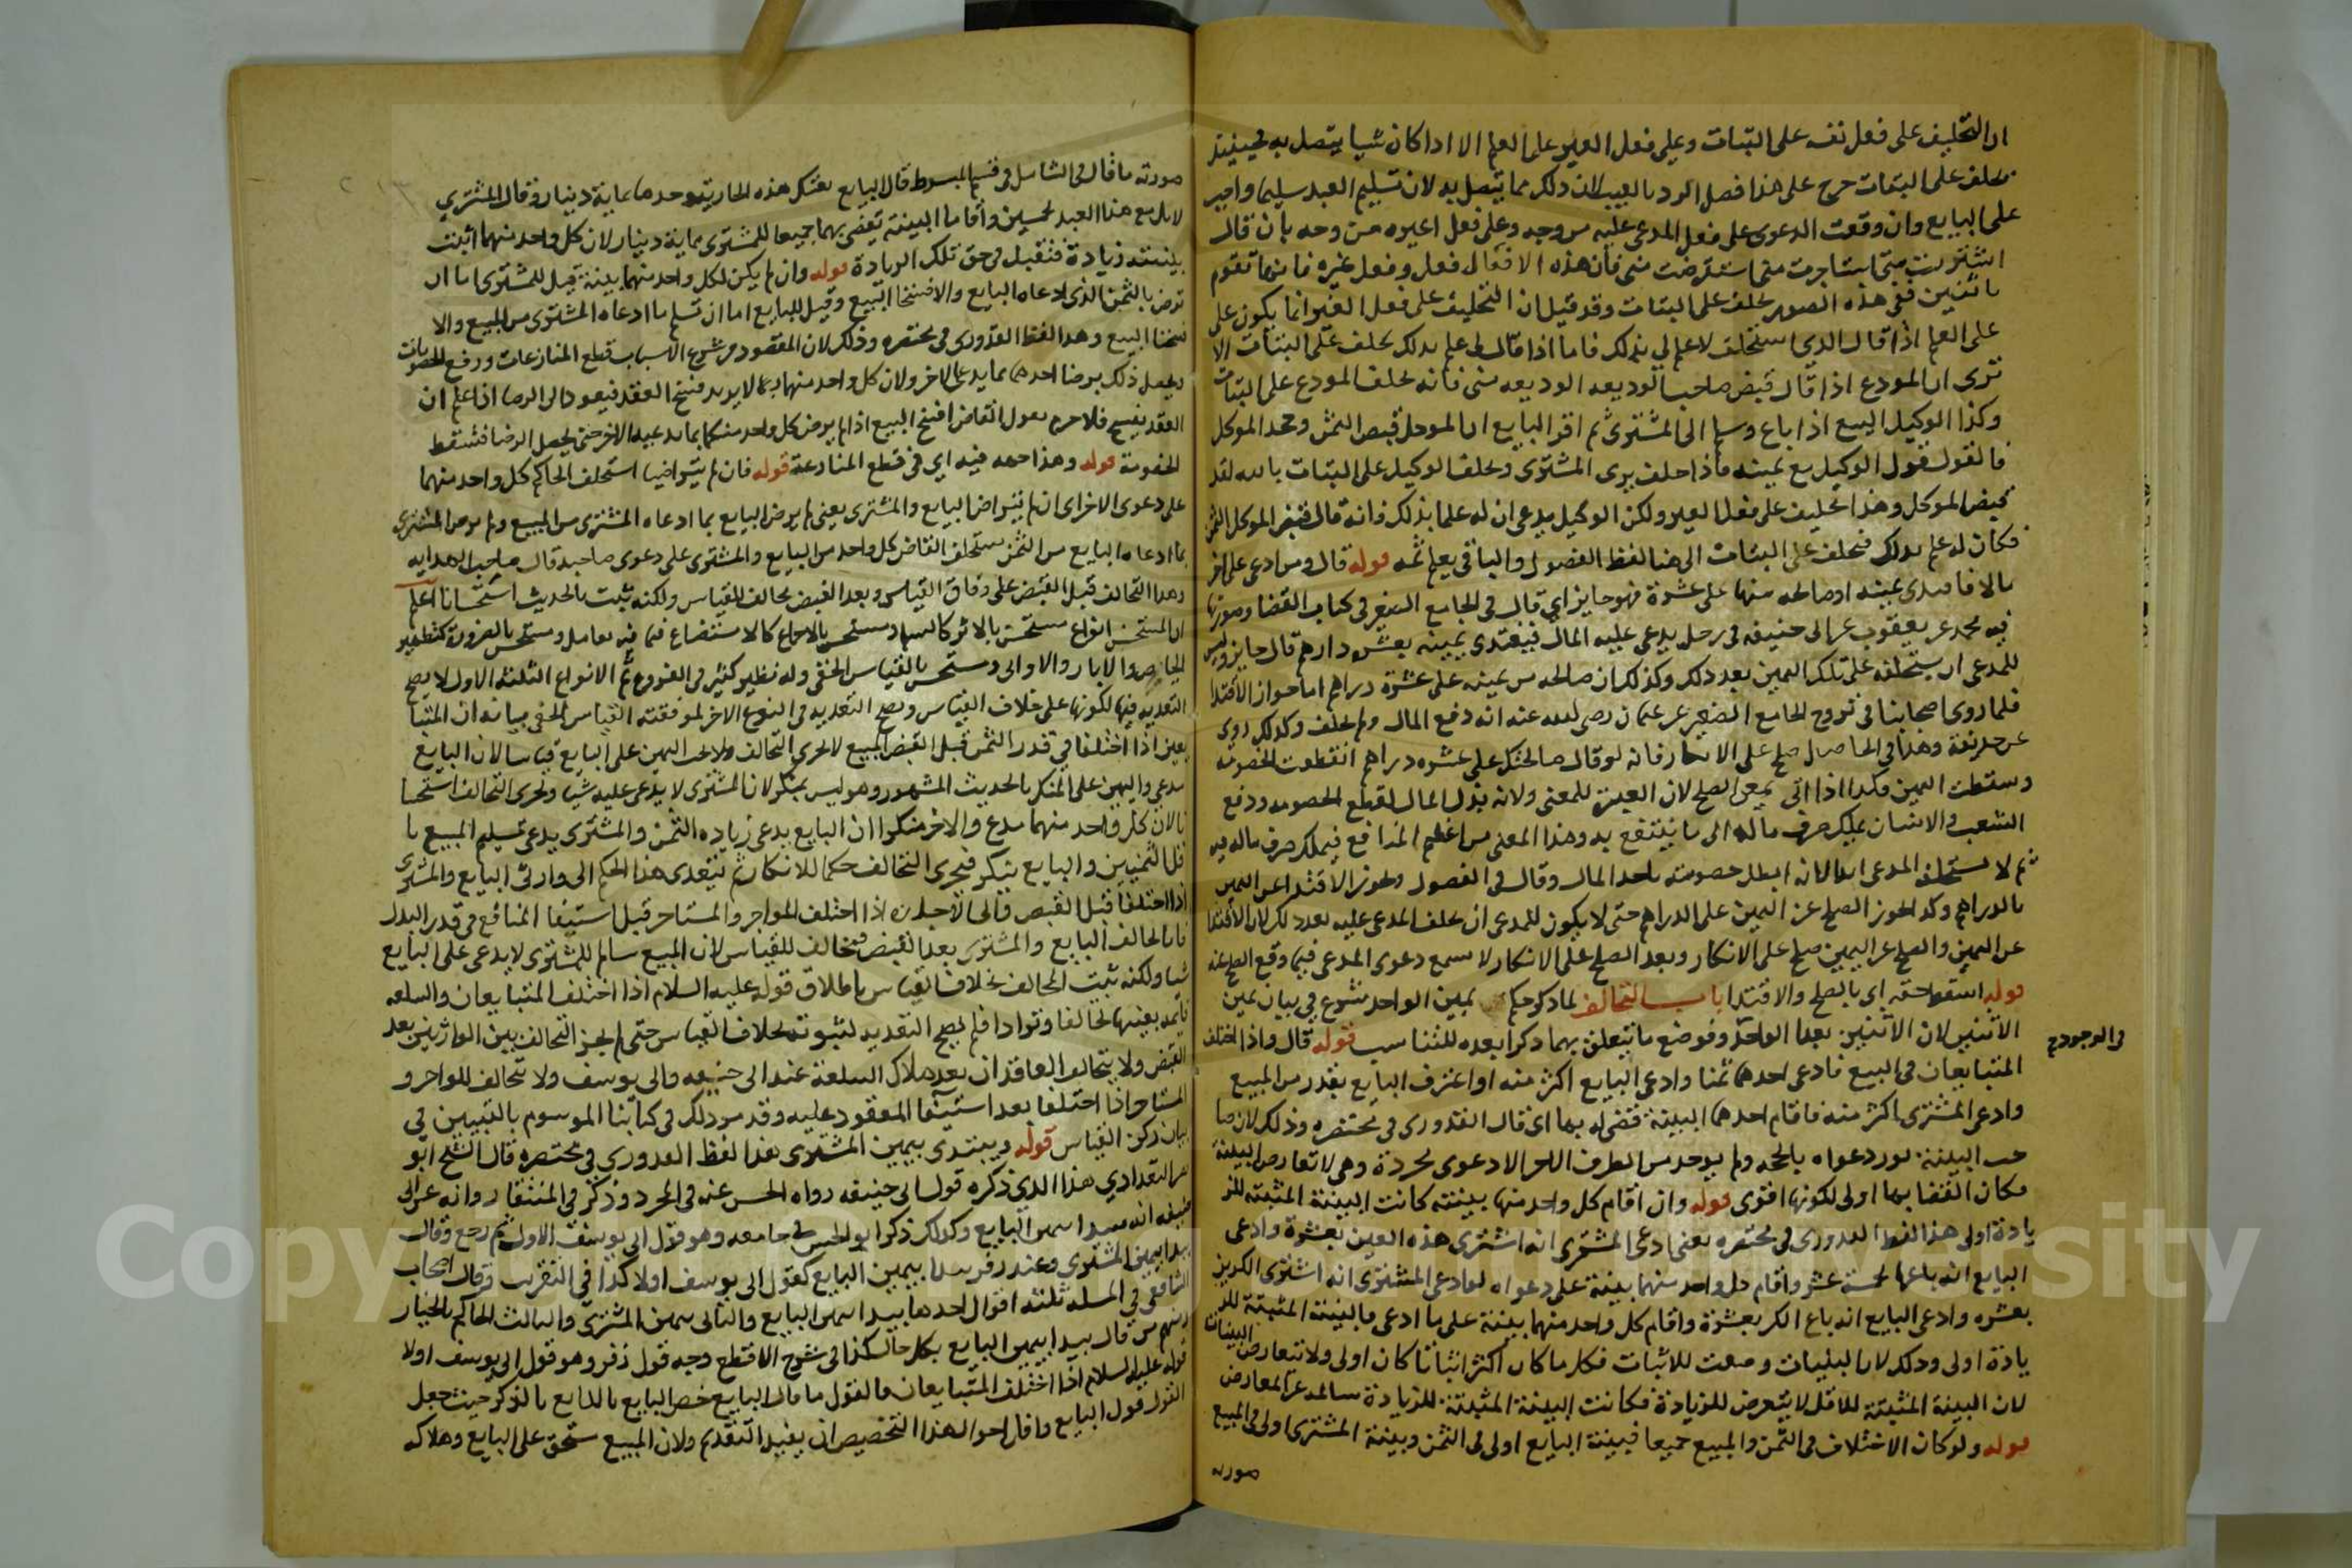 ان التحليف على فعل نفسه على البتات وعلى فعل الغير على العلم الا اذا كان شيا يتصل به فحينئذ
يحلف على البتات خرج على هذا فصل الرد بالعيب لان ذلك مما يتصل به لان تسليم العبد سليما واجب
على البايع وان وقعت الدعوى على فعل المدعى عليه من وجه وعلى فعل غيره من وجه بان قال
اشتريت منى استاجرت منى استقرضت منى فان هذه الافعال فعل وفعل غيره فانها تقوم
باثنين ففى هذه الصور يحلف على البتات وقد قيل ان التحليف على فعل الغير انما يكون على
على العلم اذا قال الذي استحلف لا علم لى بذلك فاما اذا قال لى علم بذلك يحلف على البتات الا
ترى ان المودع اذا قال قبض صاحب الوديعه الوديعه منى فانه يحلف المودع على البتات
وكذا الوكيل البيع اذا باع وسلم الى المشترى ثم اقر البايع ان الموكل قبض الثمن وجحد الموكل
فالقول قول الوكيل مع يمينه فاذا حلف برى المشترى ويحلف الوكيل على البتات بالله لقد
قبض الموكل وهذا تحليف على فعل الغير ولكن الوكيل يدعى ان له علما بذلك فانه قال قبض الموكل الثمن
فكان له علم بذلك فيحلف على البتات الى هنا لفظ الفصول والباقى يعلم ثمه قوله قال ومن ادعى على اخر
مالا فافتدى يمينه او صالحه منها على عشرة فهو جايز اي قال فى الجامع الصغير فى كتاب القضا وصورتها
فيه محمد عن يعقوب عن ابى حنيفه فى رجل يدعى عليه المال فيفتدى يمينه بعشره دراهم قال جايز وليس
للمدعى ان يستحلفه على تلك اليمين بعد ذلك وكذلك ان صالحه من يمينه على عشرة دراهم اما جواز الافتدا
فلما روى اصحابنا فى شروح الجامع الصغير عن عثمان رضى الله عنه انه دفع المال ولم يحلف وكذلك روى
عن حذيفة وهذا فى الحاصل صلح على الانكار فانه لو قال صالحتك على عشره دراهم انقطعت الخصومه
وسقطت اليمين فكذا اذا اتى بمعنى الصلح لان العبرة للمعنى ولانه بذل المال لقطع الخصومه ودفع
الشغب والانسان يملك صرف ماله الى ما ينتفع به وهذا المعنى من اعظم المنافع فيملك صرف ماله فيه
ثم لا يستحلف المدعى ابدا لانه ابطل خصومته باخذ المال وقال فى الفصول ويجوز الافتدا عن اليمين
بالدراهم وكذا يجوز الصلح عن اليمين على الدراهم حتى لا يكون للمدعى ان يحلف المدعى عليه بعد ذلك لان الافتدا
عن اليمين والصلح عن اليمين صلح على الانكار وبعد الصلح على الانكار لا يسمع دعوى المدعى فيما وقع الصلح عنه
قوله اسقط حقه اى بالصلح والافتدا باب التحالف لما ذكر حكم يمين الواحد شرع فى بيان يمين
الاثنين لان الاثنين بعد الواحد فوضع ما يتعلق بهما ذكرا بعده للتناسب قوله قال واذا اختلف
فى الوجود صح
المتبايعان فى البيع فادعى احدهما ثمنا وادعى البايع اكثر منه او اعترف البايع بقدر من المبيع
وادعى المشترى اكثر منه فاقام احدهما البينة قضى له بها اى قال القدورى فى مختصره وذلك لان
البينة نور دعواه بالحجه ولم يوجد من الطرف الاخر الا دعوى مجردة وهى لا تعارض البينة
فكان القضا بها اولى لكونها اقوى قوله وان اقام كل واحد منهما بينته كانت البينة المثبته للز
يادة اولى هذا لفظ القدورى فى مختصره يعنى ادعى المشترى انه اشترى هذه العين بعشرة وادعى
البايع انه باعها بخمسة عشر واقام كل واحد منهما بينة على دعواه او ادعى المشترى انه اشترى الكرين
بعشره وادعى البايع انه باع الكر بعشرة واقام كل واحد منهما بينة على ما ادعى فالبينة المثبتة للز
يادة اولى وذلك لان البينات وضعت للاثبات فكل ما كان اكثر اثباتا كان اولى ولا تتعارض البينات
لان البينة المثبتة للاقل لا يتعرض للزيادة فكانت البينة المثبتة للزيادة سالمه عن المعارض
قوله ولو كان الاختلاف فى الثمن والمبيع جميعا فبينة البايع اولى فى الثمن وبينة المشترى اولى فى المبيع
صورته
صورته ما قال فى الشامل فى قسم المبسوط قال البايع بعتك هذه الجارية وحدها بماية دينار وقال المشترى
لا بل مع هذا العبد بخمسين واقاما البينة يقضى بهما جميعا للمشترى بماية دينار لان كل واحد منهما اثبت
ببينته زيادة فتقبل فى حق تلك الزيادة قوله وان لم يكن لكل واحد منهما بينة قيل للمشترى اما ان
ترضى بالثمن الذى ادعاه البايع والا فسخنا البيع وقيل للبايع اما ان تسلم ما ادعاه المشترى من المبيع والا
فسخنا البيع وهذا لفظ القدورى فى مختصره وذلك لان المقصود من شرع الاسباب قطع المنازعات ورفع الخصومات
ويحصل ذلك برضا احدهما بما يدعى الاخر ولان كل واحد منهما ربما لا يريد فسخ العقد فيعود الى الرضا اذا علم ان
العقد يفسخ فلا جرم يقول القاضى افسخ البيع اذا لم يرض كل واحد منكما بما يدعيه الاخر حتى يحصل الرضا فتسقط
الخصومة قوله وهذا جهه فيه اي فى قطع المنازعة قوله فان لم يتراضيا استحلف الحاكم كل واحد منهما
على دعوى الاخر اى ان لم يتراضى البايع والمشترى يعنى لم يرض البايع بما ادعاه المشترى من المبيع ولم يرض المشترى
بما ادعاه البايع من الثمن يستحلف القاضى كل واحد من البايع والمشترى على دعوى صاحبه قال صاحب الهدايه
وهذا التحالف قبل القبض على وفاق القياس وبعد القبض مخالف للقياس ولكنه ثبت بالحديث استحسانا اعلم
ان المستحسن انواع مستحسن بالاثر كالسلم ومستحسن بالاجماع كالاستصناع فيما فيه تعامل ومستحسن بالضرورة كتطهير
الحياض والابار والاوانى ومستحسن بالقياس الخفى وله نظير كثير فى الفروع ثم الانواع الثلثه الاول لا يصح
التعديه فيها لكونها على خلاف القياس ويصح التعديه فى النوع الاخر لموافقته القياس الخفى بيانه ان المتبا
يعين اذا اختلفا فى قدر الثمن قبل القبض المبيع لا يجرى التحالف ولا يجب اليمين على البايع قياسا لان البايع
مدعى واليمين على المنكر بالحديث المشهور وهو ليس بمنكر لان المشترى لا يدعى عليه شيا ويجرى التحالف استحسا
نا لان كل واحد منهما مدع والاخر منكر اذ ان البايع يدعى زياده الثمن والمشترى يدعى تسليم المبيع با
قل الثمنين والبايع ينكر فيجرى التحالف حكما للانكار ثم يتعدى هذا الحكم الى وارثى البايع والمشترى
اذا اختلفا قبل القبض والى الاجارة اذا اختلف المواجر والمستاجر قبل استيفا المنافع فى قدر البدل
فاما تحالف البايع والمشترى بعد القبض فمخالف للقياس لان المبيع سالم للمشترى لا يدعى على البايع
شيا ولكنه ثبت التحالف بخلاف القياس باطلاق قوله عليه السلام اذا اختلف المتبايعان والسلعه
قائمه بعينها تحالفا وترادا فلم يصح التعديه لثبوته بخلاف القياس حتى لم يجز التحالف بين الوارثين بعد
القبض ولا يتحالف العاقدان بعد هلاك السلعة عند ابى حنيفه وابى يوسف ولا يتحالف المواجر و
المستاجر اذا اختلفا بعد استيفا المعقود عليه وقد مر ذلك فى كتابنا الموسوم بالتبيين فى
بيان ركن القياس قوله ويبتدى بيمين المشترى هذا لفظ القدوري فى مختصره قال الشيخ ابو
نصر البغدادي هذا الذى ذكره قول ابى حنيفه رواه الحسن عنه فى المجرد وذكر فى المنتقا روايه عن ابى
حنيفه انه يبدا بيمين البايع وكذلك ذكر ابو الحسن فى جامعه وهو قول ابى يوسف الاول ثم رجع وقال
يبدا بيمين المشترى وعند زفر يبدا بيمين البايع كقول ابى يوسف اولا كذا فى التقريب وقال اصحاب
الشافعى فى المسله ثلثة اقوال احدها يبدا بيمين البايع والثانى بيمين المشترى والثالث الحاكم بالخيار
ومنهم من قال يبدا بيمين البايع بكل حال كذا فى شرح الاقطع وجه قول زفر وهو قول ابى يوسف اولا
قوله عليه السلام اذا اختلف المتبايعان فالقول ما قال البايع خص البايع بالذكر حيث جعل
القول قول البايع واقل احوال هذا التخصيص ان يفيد التقديم ولان المبيع مستحق على البايع وهلاكه